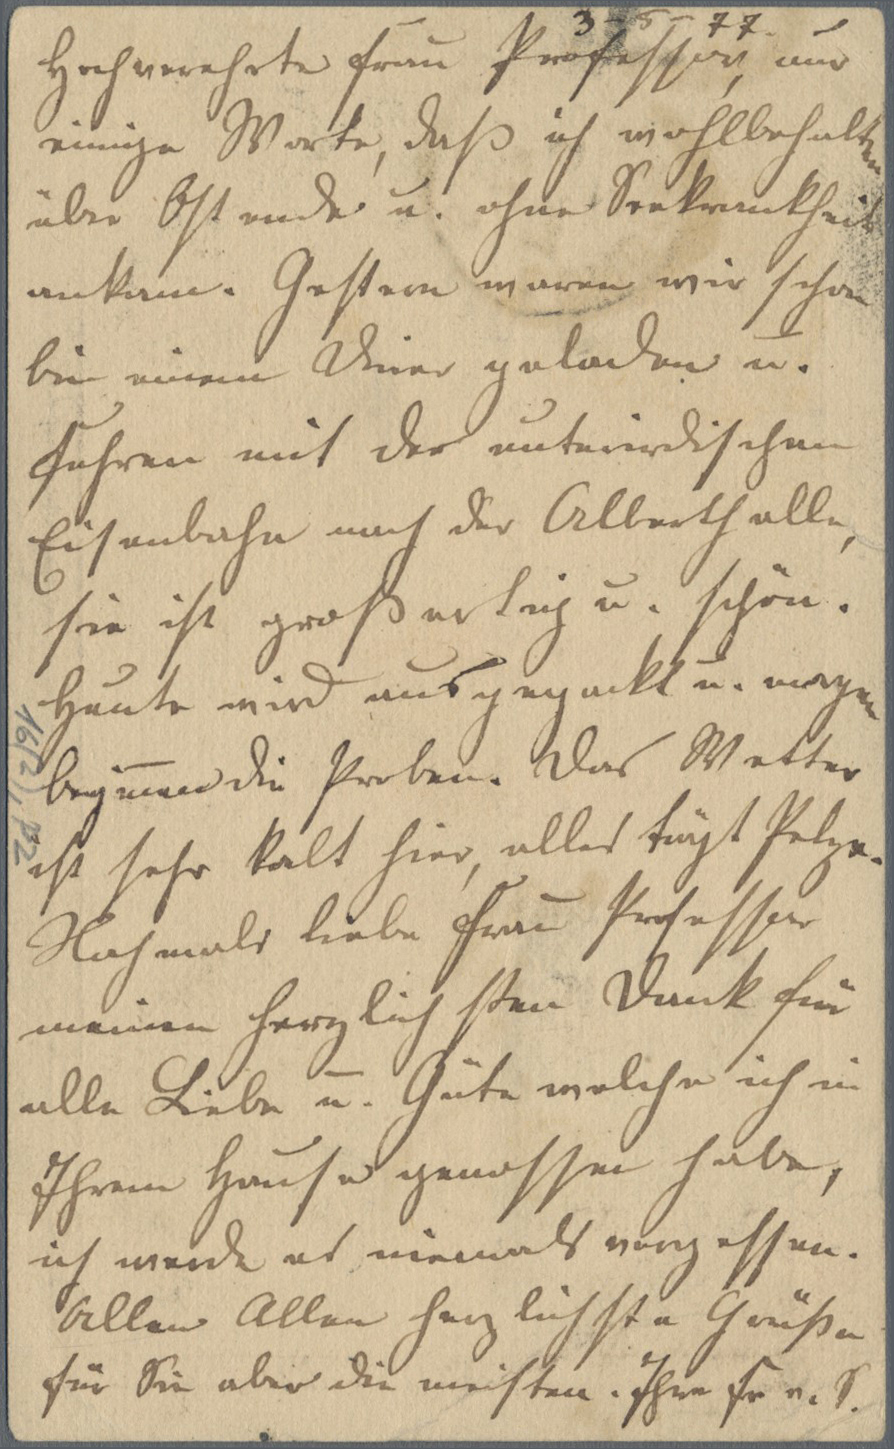 3-5-77.
Hochverehrte Frau Professor, nur
einige Worte, daß ich wohlbehalten
über Ostende u. ohne Seekrankheit
ankam. Gestern waren wir schon
bei einem Diner geladen u.
fuhren mit der unterirdischen
Eisenbahn nach der Alberthalle,
sie ist großartig u. schön.
Heute wird ausgepackt u. morgen
beginnen die Proben. Das Wetter
ist sehr kalt hier, alles trägt Pelze.
Nochmals liebe Frau Professor
meinen herzlichsten Dank für
alle Liebe u. Güte welche ich in
Ihrem Hause genossen habe,
ich werde es niemals vergessen.
Allen Allen herzlichste Grüße
für Sie aber die meisten. Ihre Fr v. S.
16(2), P2